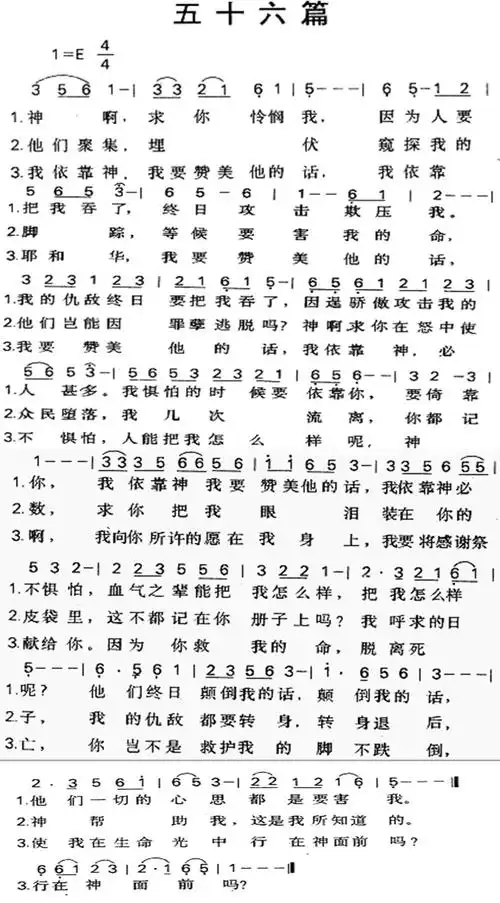 五十六篇
1=E 4/4
3 56 1-| 33 21 6 1|5---|6 5-1 2|
1.神 啊,求你 怜悯我, 因为人要
2.他们聚集,埋 伏 窥探我的
3.我依靠神,我要赞美他的话, 我依靠
5 65 3-|6 5-6|1--61|2---|
1.把我吞了,终日攻击欺压我。
2.脚 踪,等候要害我的命,
3.耶和华,我要赞美他的话,
3 23 1 23|21 61 5-|65 61 21 23|
1.我的仇敌终日 要把我吞了,因逞骄傲攻击我的
2.他们岂能因 罪孽逃脱吗?神啊,求你在怒中使
3.我要 赞美 他的话,我依靠神,必
56 53-|5653 23 21|65 6--|32-3|
1.人 甚多。我惧怕的时候要依靠你,要倚靠
2.众民堕落,我几次 流离,你都记
3.不 惧怕,人能把我怎么 样呢,神
1---|3335 6656|1·165 3-|335655|
1.你, 我依靠神我要赞美他的话,我依靠神必
2.数, 求你把我眼 泪装在你的
3.啊, 我向你所许的愿在我身上,我要将感谢祭
532-|223556|3221-|2·32161|
1.不惧怕,血气之辈能把我怎么样,把我怎么样
2.皮袋里,这不都记在你册子上吗?我呼求的日
3.献给你。因为你救 我的命,脱离死
5---|6·561|23563-|1·656|3---|
1.呢? 他们终日颠倒我的话,颠倒我的话,
2.子, 我的仇敌都要转身,转身退后,
3.亡, 你岂不是救护我的脚不跌倒,
2·3561|653-|221216|5---‖
1.他们一切的心思都是要害我。
2.神 帮 助我,这是我所知道的。
3.使我在生命光中行在神面前吗?
66123|2·165|1---‖
3.行在神面前吗?